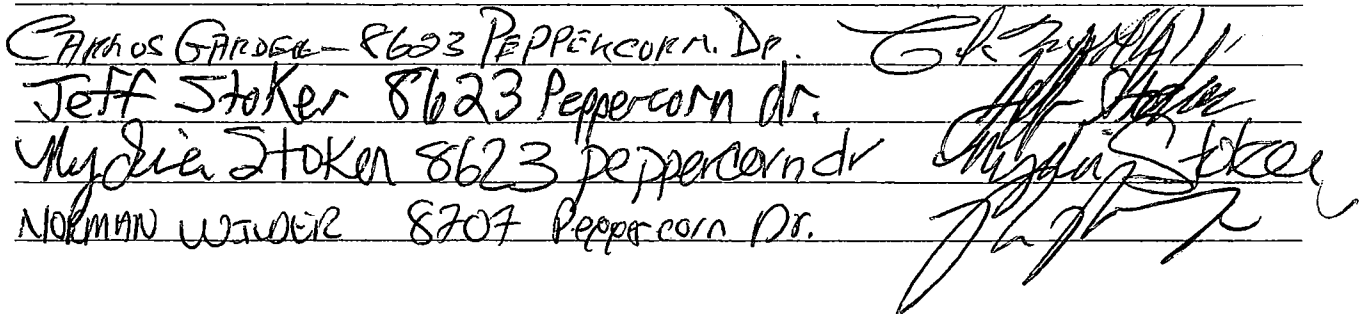 CARLOS GARDEL - 8623 PEPPERCORN. DR.
Jeff Stoker 8623 Peppercorn dr. Jeff Stoker
Nydia Stoker 8623 peppercorn dr Nydia Stoker
NORMAN WILDER 8707 Peppercorn Dr.